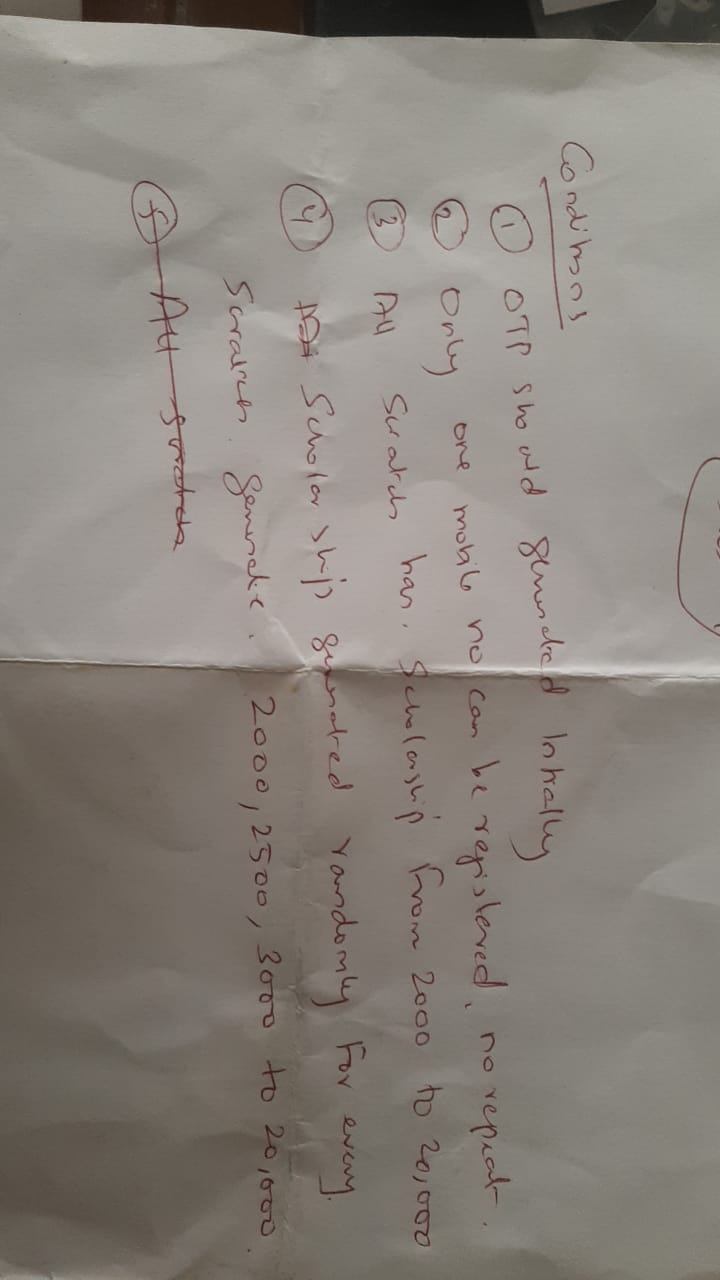 Conditions
① OTP should generated Initially
② Only one mobile no can be registered, no repeat.
③ All Scratch has. Scholarship From 2000 to 20,000
④ Scholarship generated randomly For every.
Scratch generate. 2000, 2500, 3000 to 20,000.
⑤ All Scratch